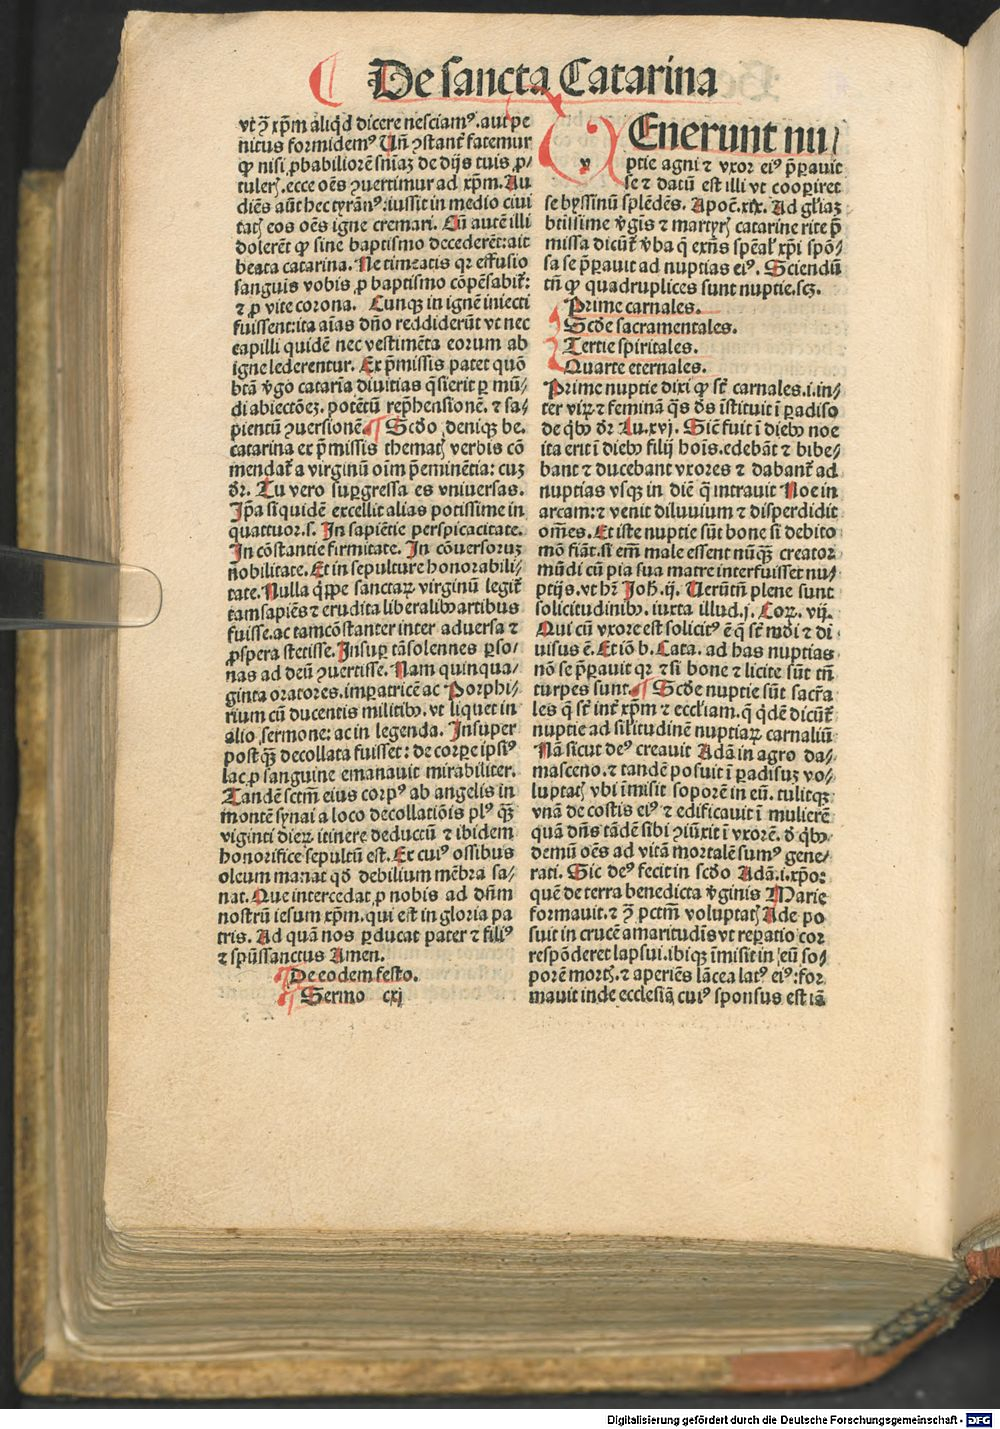 De sancta Catarina
vt ꝯ̄ xp̄m aliq̇d dicere nesciamꝰ. aut pe
nitus formidemꝰ Un̄ ꝯstant᷑ fatemur
ꝙ nisi ꝓbabiliorē sniaꝫ de dijs tuis ꝓ⸗
tuler̄. ecce oēs ꝯuertimur ad xp̄m. Au
diēs aūt hec tyrānꝰ: iussit in medio ciui
tat̄ eos oēs igne cremari. Cū autē illi
dolerēt ꝙ sine baptismo decederēt: ait
beata catarina. Ne timeatis qꝛ effusio
sanguis vobis ꝓ baptismo cōpēsabit᷑:
⁊ ꝓ vite corona. Cunqꝫ in ignē iniecti
fuissent: ita aīas dn̄o reddiderūt vt nec
capilli quidē nec vestimēta eorum ab
igne lederentur. Ex p̄missis patet quō
btā ỽgo cataria diuitias q̄sierit ꝑ mū⸗
di abiectōeꝫ. potētū rep̄hensionē. ⁊ sa⸗
pientū ꝯuersionē. Scd̄o deniqꝫ be.
catarina ex p̄missis themat̄ verbis cō
mendat᷑ a virginū oīm p̄eminētia: cuꝫ
dr̄. Tu vero suꝑgressa es vniuersas.
Ip̄a siquidē excellit alias potissime in
quattuor. s. In sapiētie perspicacitate.
In cōstantie firmitate. In cōuersoruꝫ
nobilitate. Et in sepulture honorabili⸗
tate. Nulla q̇ppe sanctaꝝ virginū legit᷑
tam sapiēs ⁊ erudita liberalibꝫ artibus
fuisse. ac tam cōstanter inter aduersa ⁊
ꝓspera stetisse. Insuꝑ tā solennes ꝑso⸗
nas ad deū ꝯuertisse. Nam quinqua⸗
ginta oratores. imꝑatricē ac Porphi⸗
rium cū ducentis militibꝫ. vt liquet in
alio sermone: ac in legenda. Insuper
postqꝫ̄ decollata fuisset: de corꝑe ipsiꝰ
lac ꝓ sanguine emanauit mirabiliter.
Tandē sctm̄ eius corpꝰ ab angelis in
montē synai a loco decollatiōis plꝰ qꝫ̄
viginti dieꝝ itinere deductū ⁊ ibidem
honorifice sepultū est. Ex cuiꝰ ossibus
oleum manat qd̄ debilium mēbra sa⸗
nat. Que intercedat ꝓ nobis ad dn̄m
nostrū iesum xp̄m. qui est in gloria pa
tris. Ad quā nos ꝑducat pater ⁊ filiꝰ
⁊ sp̄ussanctus Amen.
De eodem festo.
Sermo cxj
v
Enerunt nu⸗
ptie agni ⁊ vxor eiꝰ p̄ꝑauit
se ⁊ datū est illi vt cooꝑiret
se byssinū splēdēs. Apoc̄. xix. Ad gl̄iaꝫ
btissime ỽgīs ⁊ martyr̄ catarine rite p̄
missa dicūt᷑ ỽba q̄ exn̄s sp̄eal᷑ xp̄i spō⸗
sa se p̄ꝑauit ad nuptias eiꝰ. Sciendū
tn̄ ꝙ quadruplices sunt nuptie. scꝫ.
Prime carnales.
Scd̄e sacramentales.
Tertie spiritales.
Quarte eternales.
Prime nuptie dixi ꝙ st̄ carnales. i. in⸗
ter viꝝ ⁊ feminā q̄s ds̄ īstituit ī ꝑadiso
de q̇bꝫ dr̄ Lu. xvij. Sic̄ fuit ī diebꝫ noe
ita erit ī diebꝫ filij hoīs. edebāt ⁊ bibe⸗
bant ⁊ ducebant vxores ⁊ dabant᷑ ad
nuptias vsqꝫ in diē q̄ intrauit Noe in
arcam: ⁊ venit diluuium ⁊ disperdidit
om̄es. Et iste nuptie sūt bone si debito
mō fiāt. si em̄ male essent nūqꝫ̄ creator
mūdi cū pia sua matre interfuisset nu⸗
ptijs. vt hr̄ Joh̄. ij. Uerūtn̄ plene sunt
solicitudinibꝫ. iuxta illud. j. Coꝝ. vij.
Qui cū vxore est solicitꝰ ē q̄ st̄ mūdi ⁊ di
uisus ē. Et iō b. Cata. ad has nuptias
nō se p̄ꝑauit qꝛ ⁊ si bone ⁊ licite sūt tn̄
turpes sunt. Scd̄e nuptie sūt sacr̄a
les q̄ st̄ int᷑ xp̄m ⁊ eccl̄iam. q̄ q̇dē dicūt᷑
nuptie ad sil̄itudinē nuptiaꝝ carnaliū
Nā sicut deꝰ creauit Adā in agro da⸗
masceno. ⁊ tandē posuit ī ꝑadisuꝫ vo⸗
luptat̄ vbi īmisit soporē in eū. tulitqꝫ
vnā de costis eiꝰ ⁊ edificauit ī mulierē
quā dn̄s tādē sibi ꝯiūxit ī vxorē. d̄ q̇bꝫ
demū oēs ad vitā mortalē sumꝰ gene⸗
rati. Sic deꝰ fecit in scd̄o Adā. i. xp̄or
quē de terra benedicta ỽginis Marie
formauit. ⁊ ꝯ̄ pctm̄ voluptat̄ Ade po
suit in crucē amaritudīs vt reꝑatio cor
respōderet lapsui. ibiqꝫ īmisit in eū so⸗
porē mort̄. ⁊ aperiēs lācea latꝰ eiꝰ: for
mauit inde ecclesiā cuiꝰ sponsus est iā
Digitalisierung gefördert durch die Deutsche Forschungsgemeinschaft - DFG